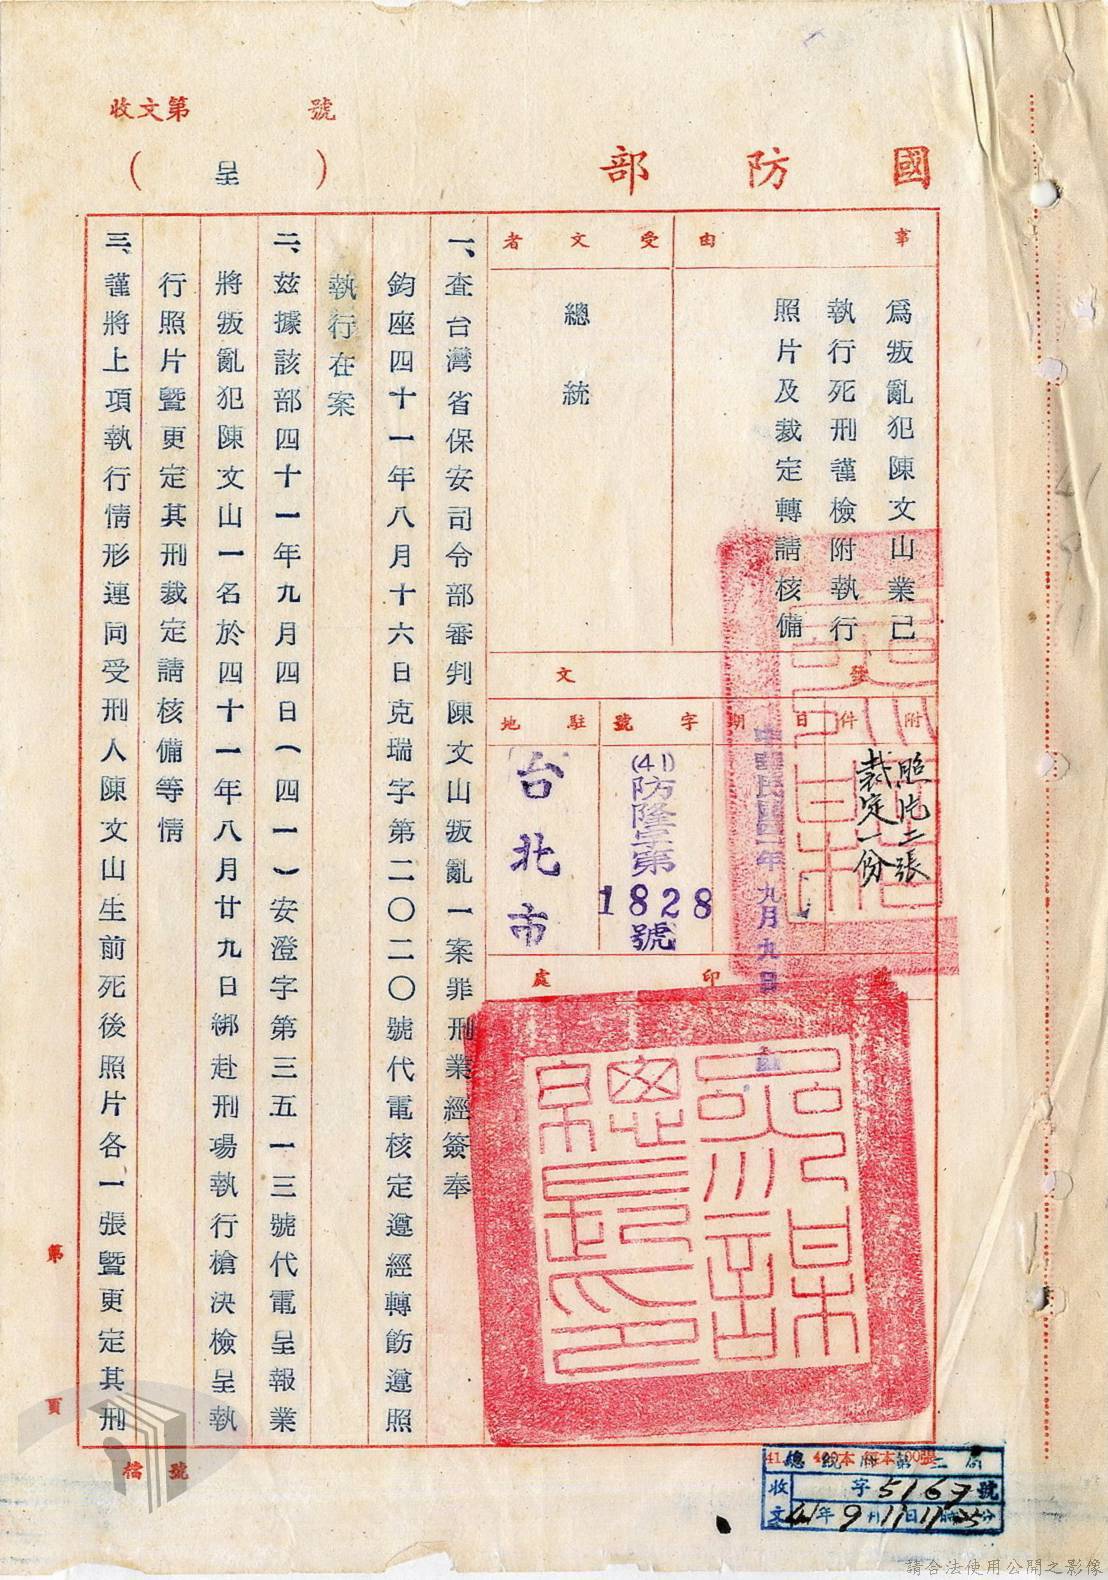 收文第　　　號
國防部
（呈）
事由
為叛亂犯陳文山業已
執行死刑謹檢附執行
照片及裁定轉請核備
受文者
總統
發文
附件
照片二張
裁定一份
日期
中華民國四十一年九月九日
字號
(41)防隆字第
1828
號
駐地
台北市
印
處
參謀總長印
一、查台灣省保安司令部審判陳文山叛亂一案罪刑業經簽奉
鈞座四十一年八月十六日克瑞字第二〇二二〇號代電核定遵經轉飭遵照
執行在案
二、茲據該部四十一年九月四日(四一)安澄字第三五一三號代電呈報業
將叛亂犯陳文山一名於四十一年八月廿九日綁赴刑場執行槍決檢呈執
行照片暨更定其刑裁定請核備等情
三、謹將上項執行情形連同受刑人陳文山生前死後照片各一張暨更定其刑
第　頁
檔號
總統府第二局
收文　字5167號
41年9月11日11時25分
請合法使用公開之影像